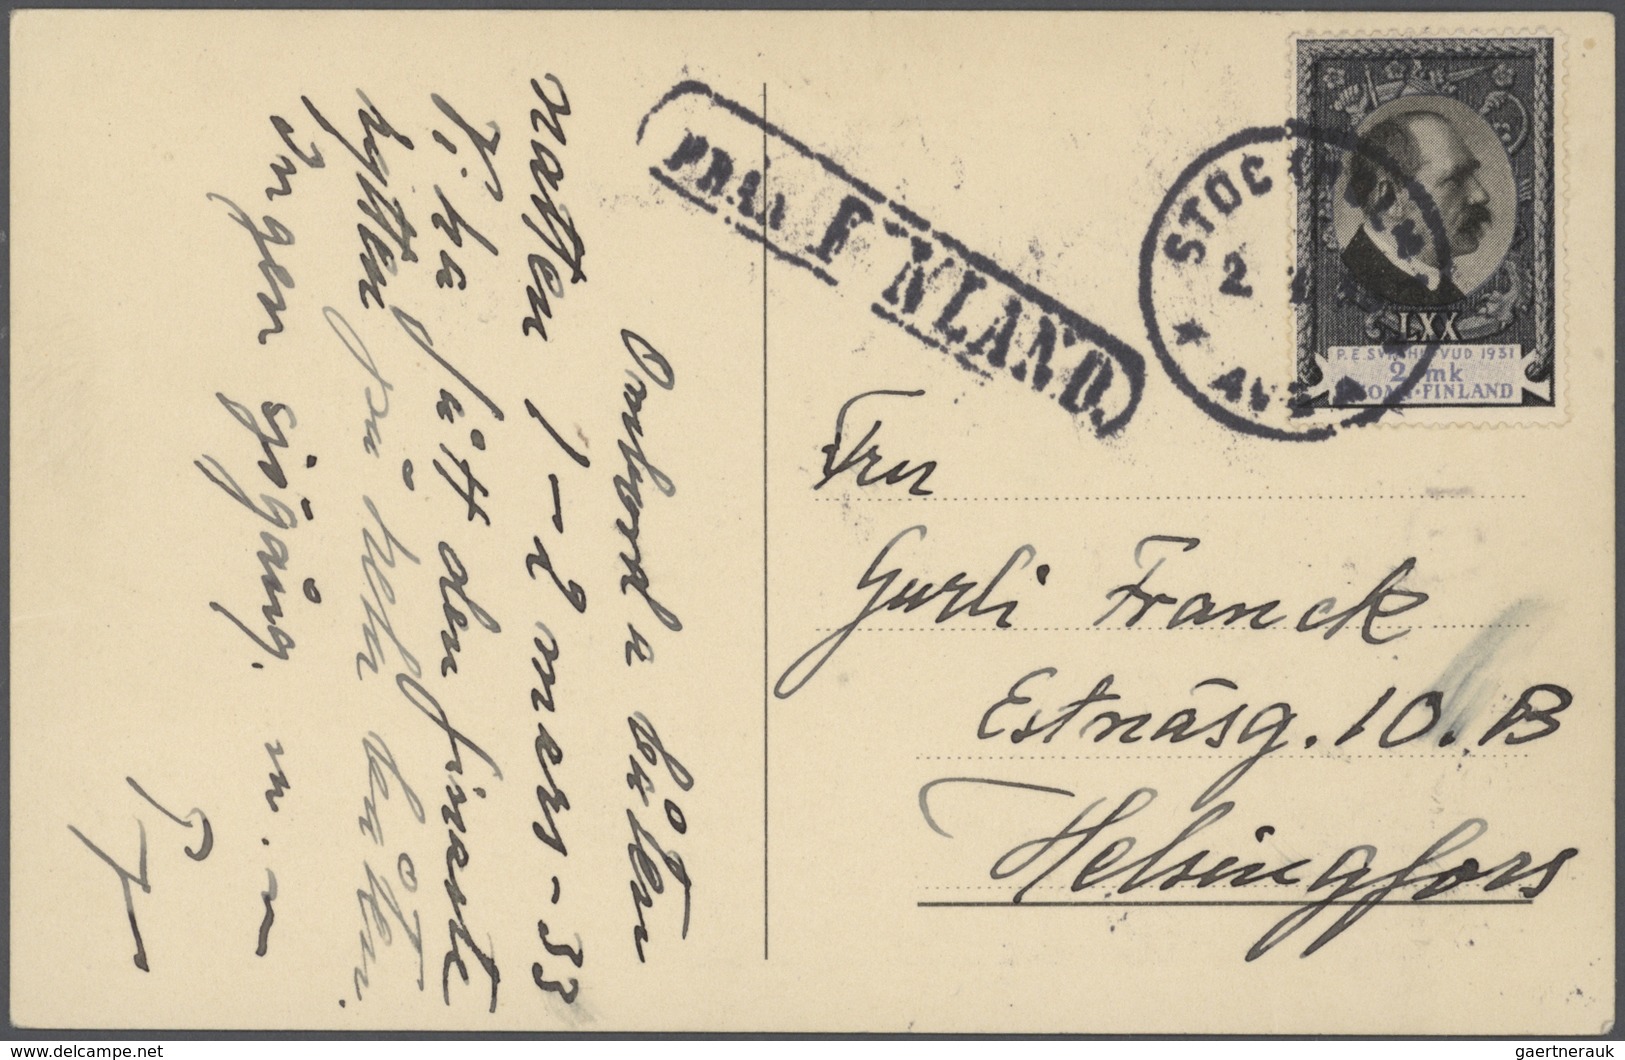 Ombord å båten
natten 1–2 mars–33
Vi ha fått den finaste
hytten på hela båten.
Ingen sjögång.
FRÅN FINLAND.
STOCKHOLM
2
AVG.
LXX
P.E. SVINHUFVUD 1931
2 mk
SUOMI·FINLAND
Fru
Gurli Franck
Estnäsg. 10. B
Helsingfors
delcampe.net
gaertnerauk